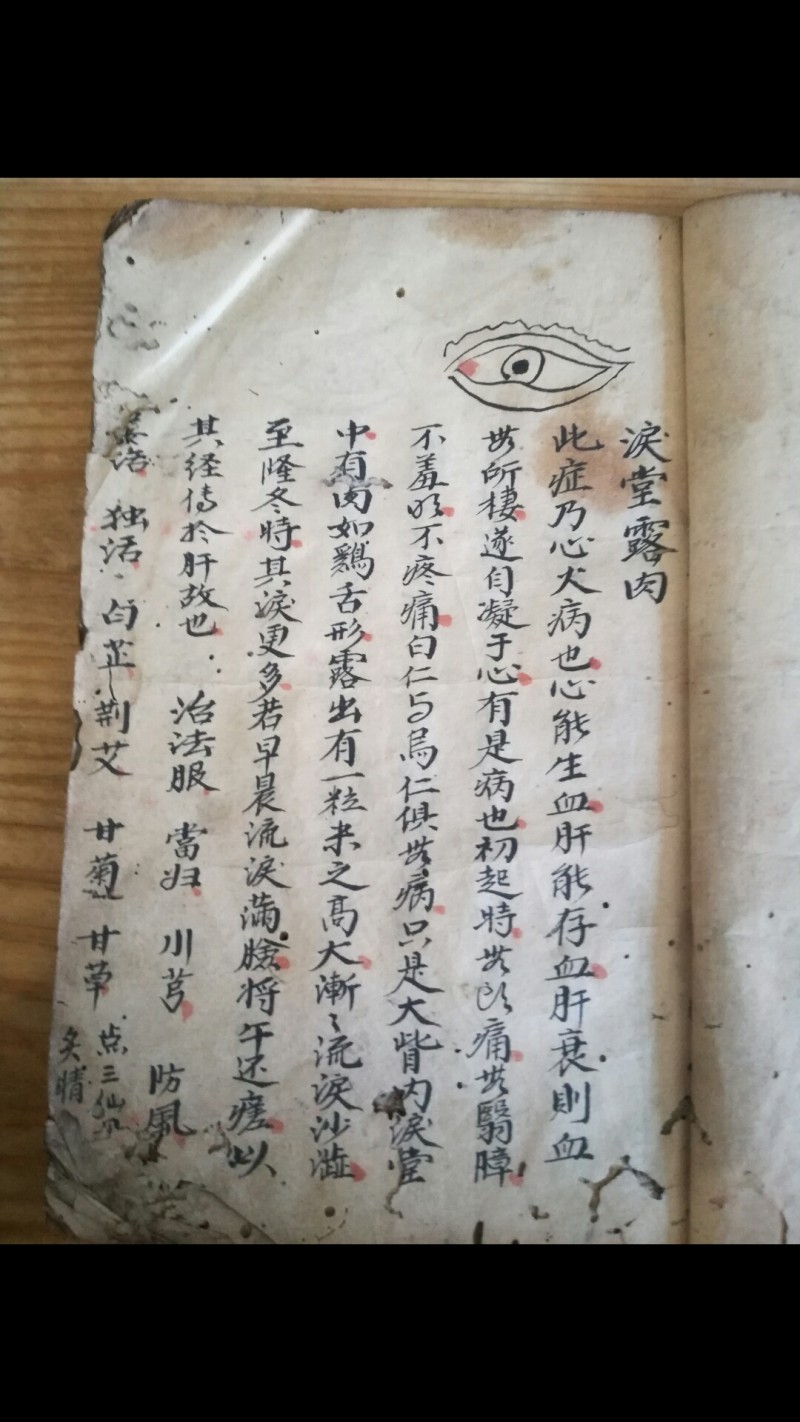 淚堂露肉
此症乃心火病也心能生血肝能存血肝衰則血
無所棲遂自凝于心有是病也初起時無頭痛無翳障
不羞明不疼痛白仁与烏仁俱無病只是大眥內淚堂
中有肉如鷄舌形露出有一粒米之高大漸〻流淚沙澁
至隆冬時其淚更多若早晨流淚滿臉將午还瘥以
其経傳於肝故也 治法服 當归 川芎 防風
独活 白芷 荆艾 甘菊 甘草 点三仙